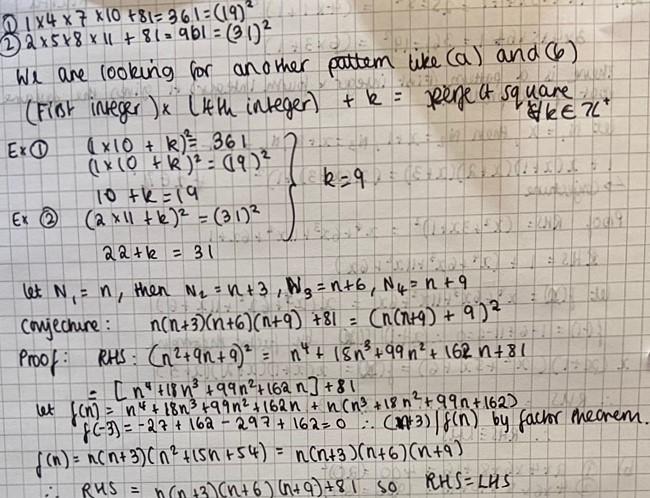 ① 1×4×7×10+81=361=(19)²
② 2×5×8×11+81=961=(31)²
We are looking for another pattern like (a) and (b)
(First integer)×(4th integer) + k = perfect square
∀k∈ℤ⁺
Ex① (1×10 + k)² = 361
(1×10 + k)² = (19)²
k=9
10 + k = 19
Ex ② (2×11 + k)² = (31)²
22+k = 31
let N₁ = n, then N₂ = n+3, N₃ = n+6, N₄ = n+9
Conjecture: n(n+3)(n+6)(n+9) +81 = (n(n+9) + 9)²
Proof: RHS: (n²+9n+9)² = n⁴ + 18n³+99n²+162n+81
= [n⁴+18n³+99n²+162n]+81
let f(n) = n⁴+18n³+99n²+162n + n(n³+18n²+99n+162)
f(-3) = -27+162-297+162=0 ∴ (n+3)|f(n) by factor theorem.
f(n)=n(n+3)(n²+15n+54) = n(n+3)(n+6)(n+9)
∴ RHS = n(n+3)(n+6)(n+9)+81 so RHS=LHS